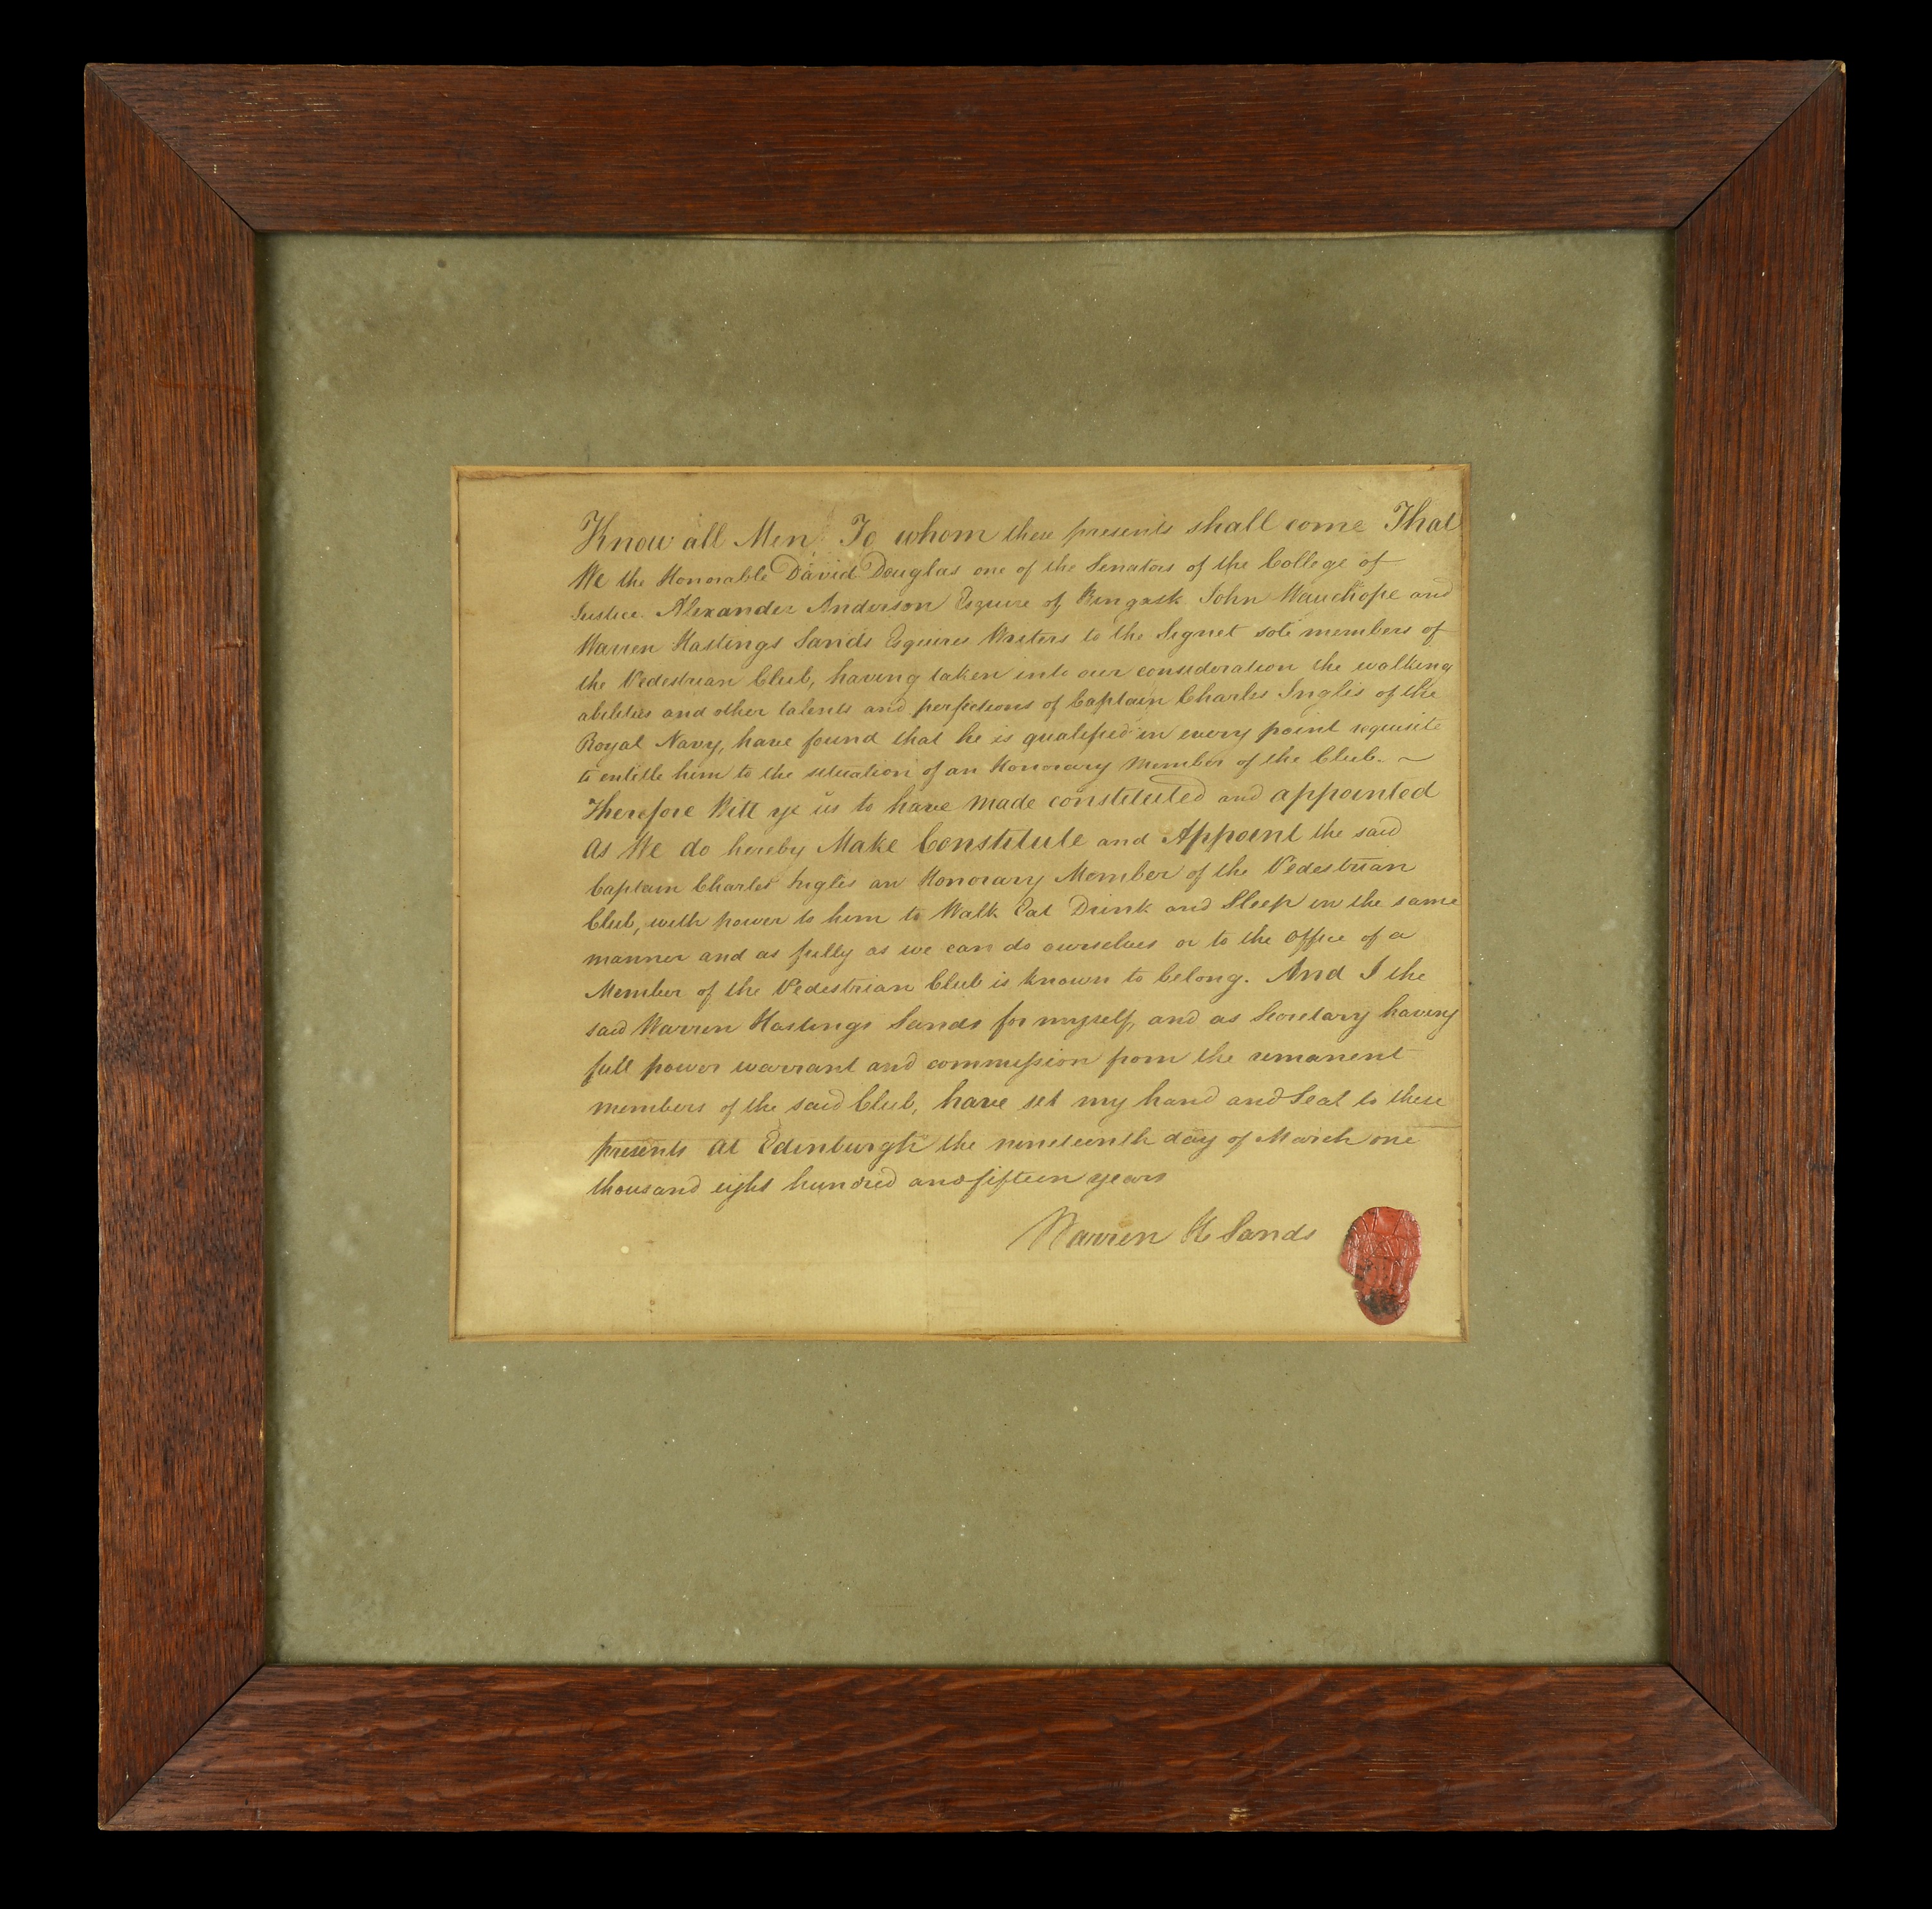 Know all Men To whom these presents shall come That
We the Honorable David Douglas one of the Senators of the College of
Justice Alexander Anderson Esquire of Kingask John Wauchope and
Warren Hastings Sands Esquires Writers to the Signet sole members of
the Pedestrian Club, having taken into our consideration the walking
abilities and other talents and perfections of Captain Charles Inglis of the
Royal Navy, have found that he is qualified in every point requisite
to entitle him to the situation of an Honorary Member of the Club. ~
Therefore Witt ye us to have made constituted and appointed
As We do hereby Make Constitute and Appoint the said
Captain Charles Inglis an Honorary Member of the Pedestrian
Club, with power to him to Walk Eat Drink and Sleep in the same
manner and as fully as we can do ourselves or to the office of a
Member of the Pedestrian Club is known to belong. And I the
said Warren Hastings Sands for myself, and as Secretary having
full power warrant and commission from the remanent
members of the said Club, have set my hand and Seal to these
presents At Edinburgh the nineteenth day of March one
thousand eight hundred and fifteen years
Warren H Sands